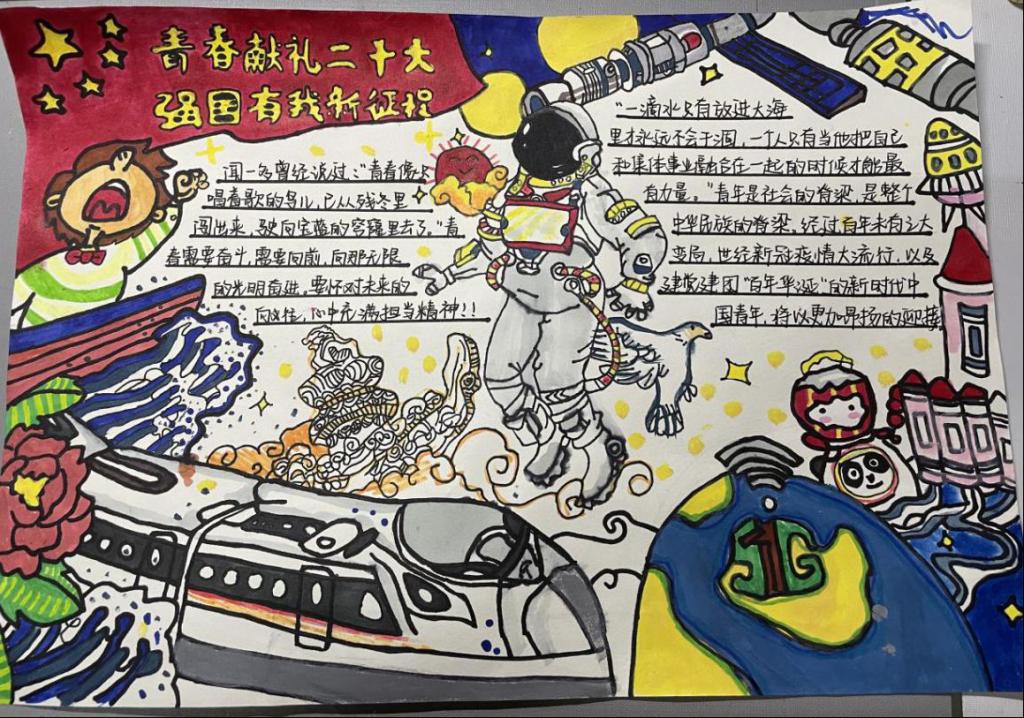 青春献礼二十大
强国有我新征程
闻一多曾经谈过:“青春像只
唱着歌的鸟儿,已从残冬里
闯出来,驶向宝蓝的穹窿里去了。”青
春需要奋斗,需要向前,向那无限
的光明奋进,要怀对未来的
向往,心中充满担当精神!!
“一滴水只有放进大海
里才永远不会干涸,一个人只有当他把自己
和集体事业融合在一起的时候才能最
有力量。”青年是社会的脊梁,是整个
中华民族的脊梁,经过百年未有之大
变局,世纪新冠疫情大流行,以及
建党建团“百年华诞”的新时代中
国青年,将以更加昂扬的迎接
5G